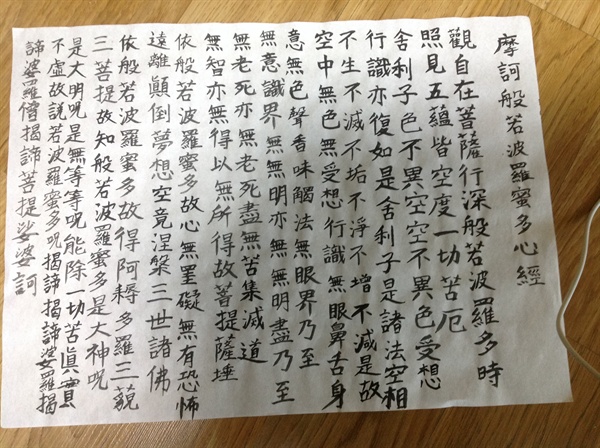 摩訶般若波羅蜜多心經
觀自在菩薩行深般若波羅多時
照見五蘊皆空度一切苦厄
舍利子色不異空空不異色受想
行識亦復如是舍利子是諸法空相
不生不滅不垢不淨不增不減是故
空中無色無受想行識無眼鼻舌身
意無色聲香味觸法無眼界乃至
無意識界無無明亦無無明盡乃至
無老死亦無老死盡無苦集滅道
無智亦無得以無所得故菩提薩埵
依般若波羅蜜多故心無罣礙無有恐怖
遠離顚倒夢想空竟涅槃三世諸佛
依般若波羅蜜多故得阿耨多羅三藐
三菩提故知般若波羅蜜多是大神呪
是大明呪是無等等呪能除一切苦眞實
不虛故說若波羅蜜多呪揭諦揭諦婆羅揭
諦婆羅僧揭諦菩提娑婆訶